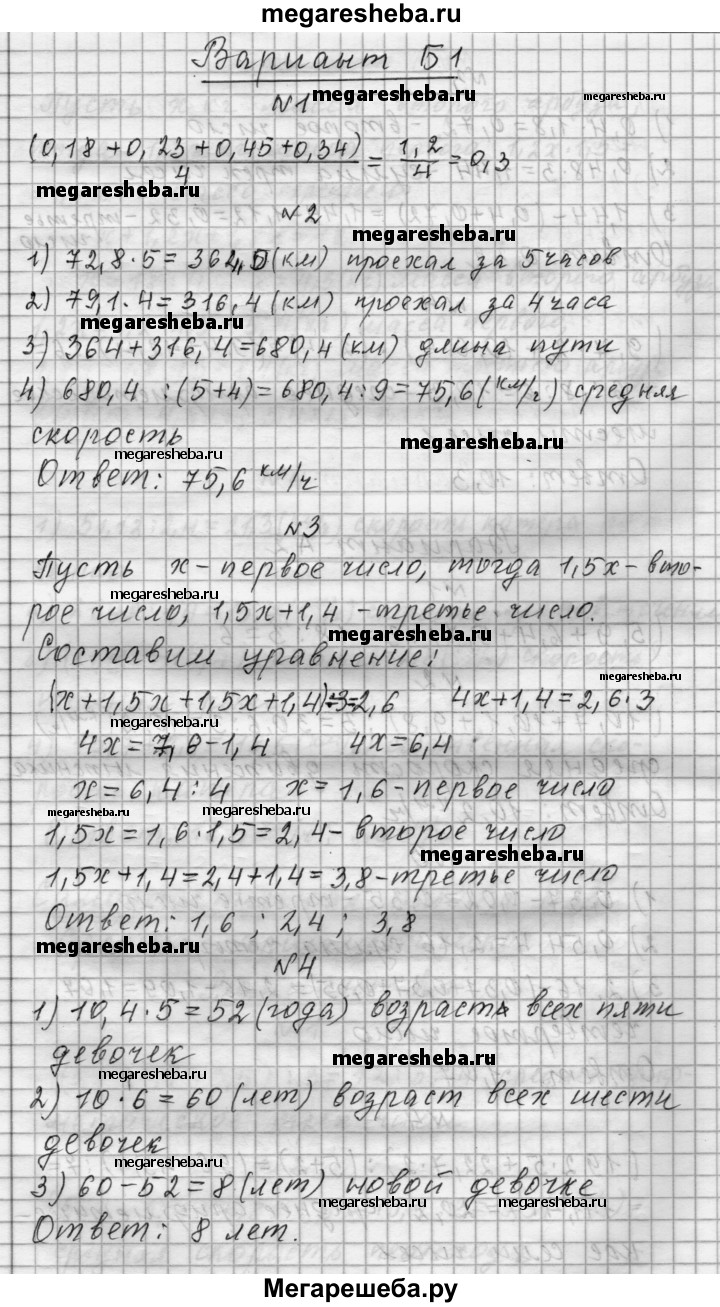 megaresheba.ru
Вариант Б1
№1 megaresheba.ru
(0,18+0,23+0,45+0,34)/4 = 1,2/4 = 0,3
megaresheba.ru
№2
megaresheba.ru
1) 72,8·5=364,0(км) проехал за 5 часов
2) 79,1·4=316,4(км) проехал за 4 часа
megaresheba.ru
3) 364+316,4=680,4(км) длина пути
4) 680,4 :(5+4)=680,4:9=75,6(км/ч) средняя
скорость
megaresheba.ru megaresheba.ru
Ответ: 75,6 км/ч
№3
Пусть х-первое число, тогда 1,5х-вто-
megaresheba.ru
рое число, 1,5х+1,4 -третье число.
megaresheba.ru
Составим уравнение:
megaresheba.ru
(х+1,5х+1,5х+1,4):3=2,6 4х+1,4=2,6·3
megaresheba.ru
4х=7,8-1,4 4х=6,4
х=6,4:4 х=1,6-первое число
megaresheba.ru megaresheba.ru
1,5х=1,6·1,5=2,4-второе число
megaresheba.ru
1,5х+1,4=2,4+1,4=3,8-третье число
Ответ: 1,6 ; 2,4 ; 3,8
megaresheba.ru
№4
1) 10,4·5=52(года) возраст всех пяти
девочек
megaresheba.ru
megaresheba.ru
2) 10·6=60(лет) возраст всех шести
девочек
megaresheba.ru
3) 60-52=8(лет) новой девочке
megaresheba.ru megaresheba.ru
Ответ: 8 лет.
Мегарешеба.ру